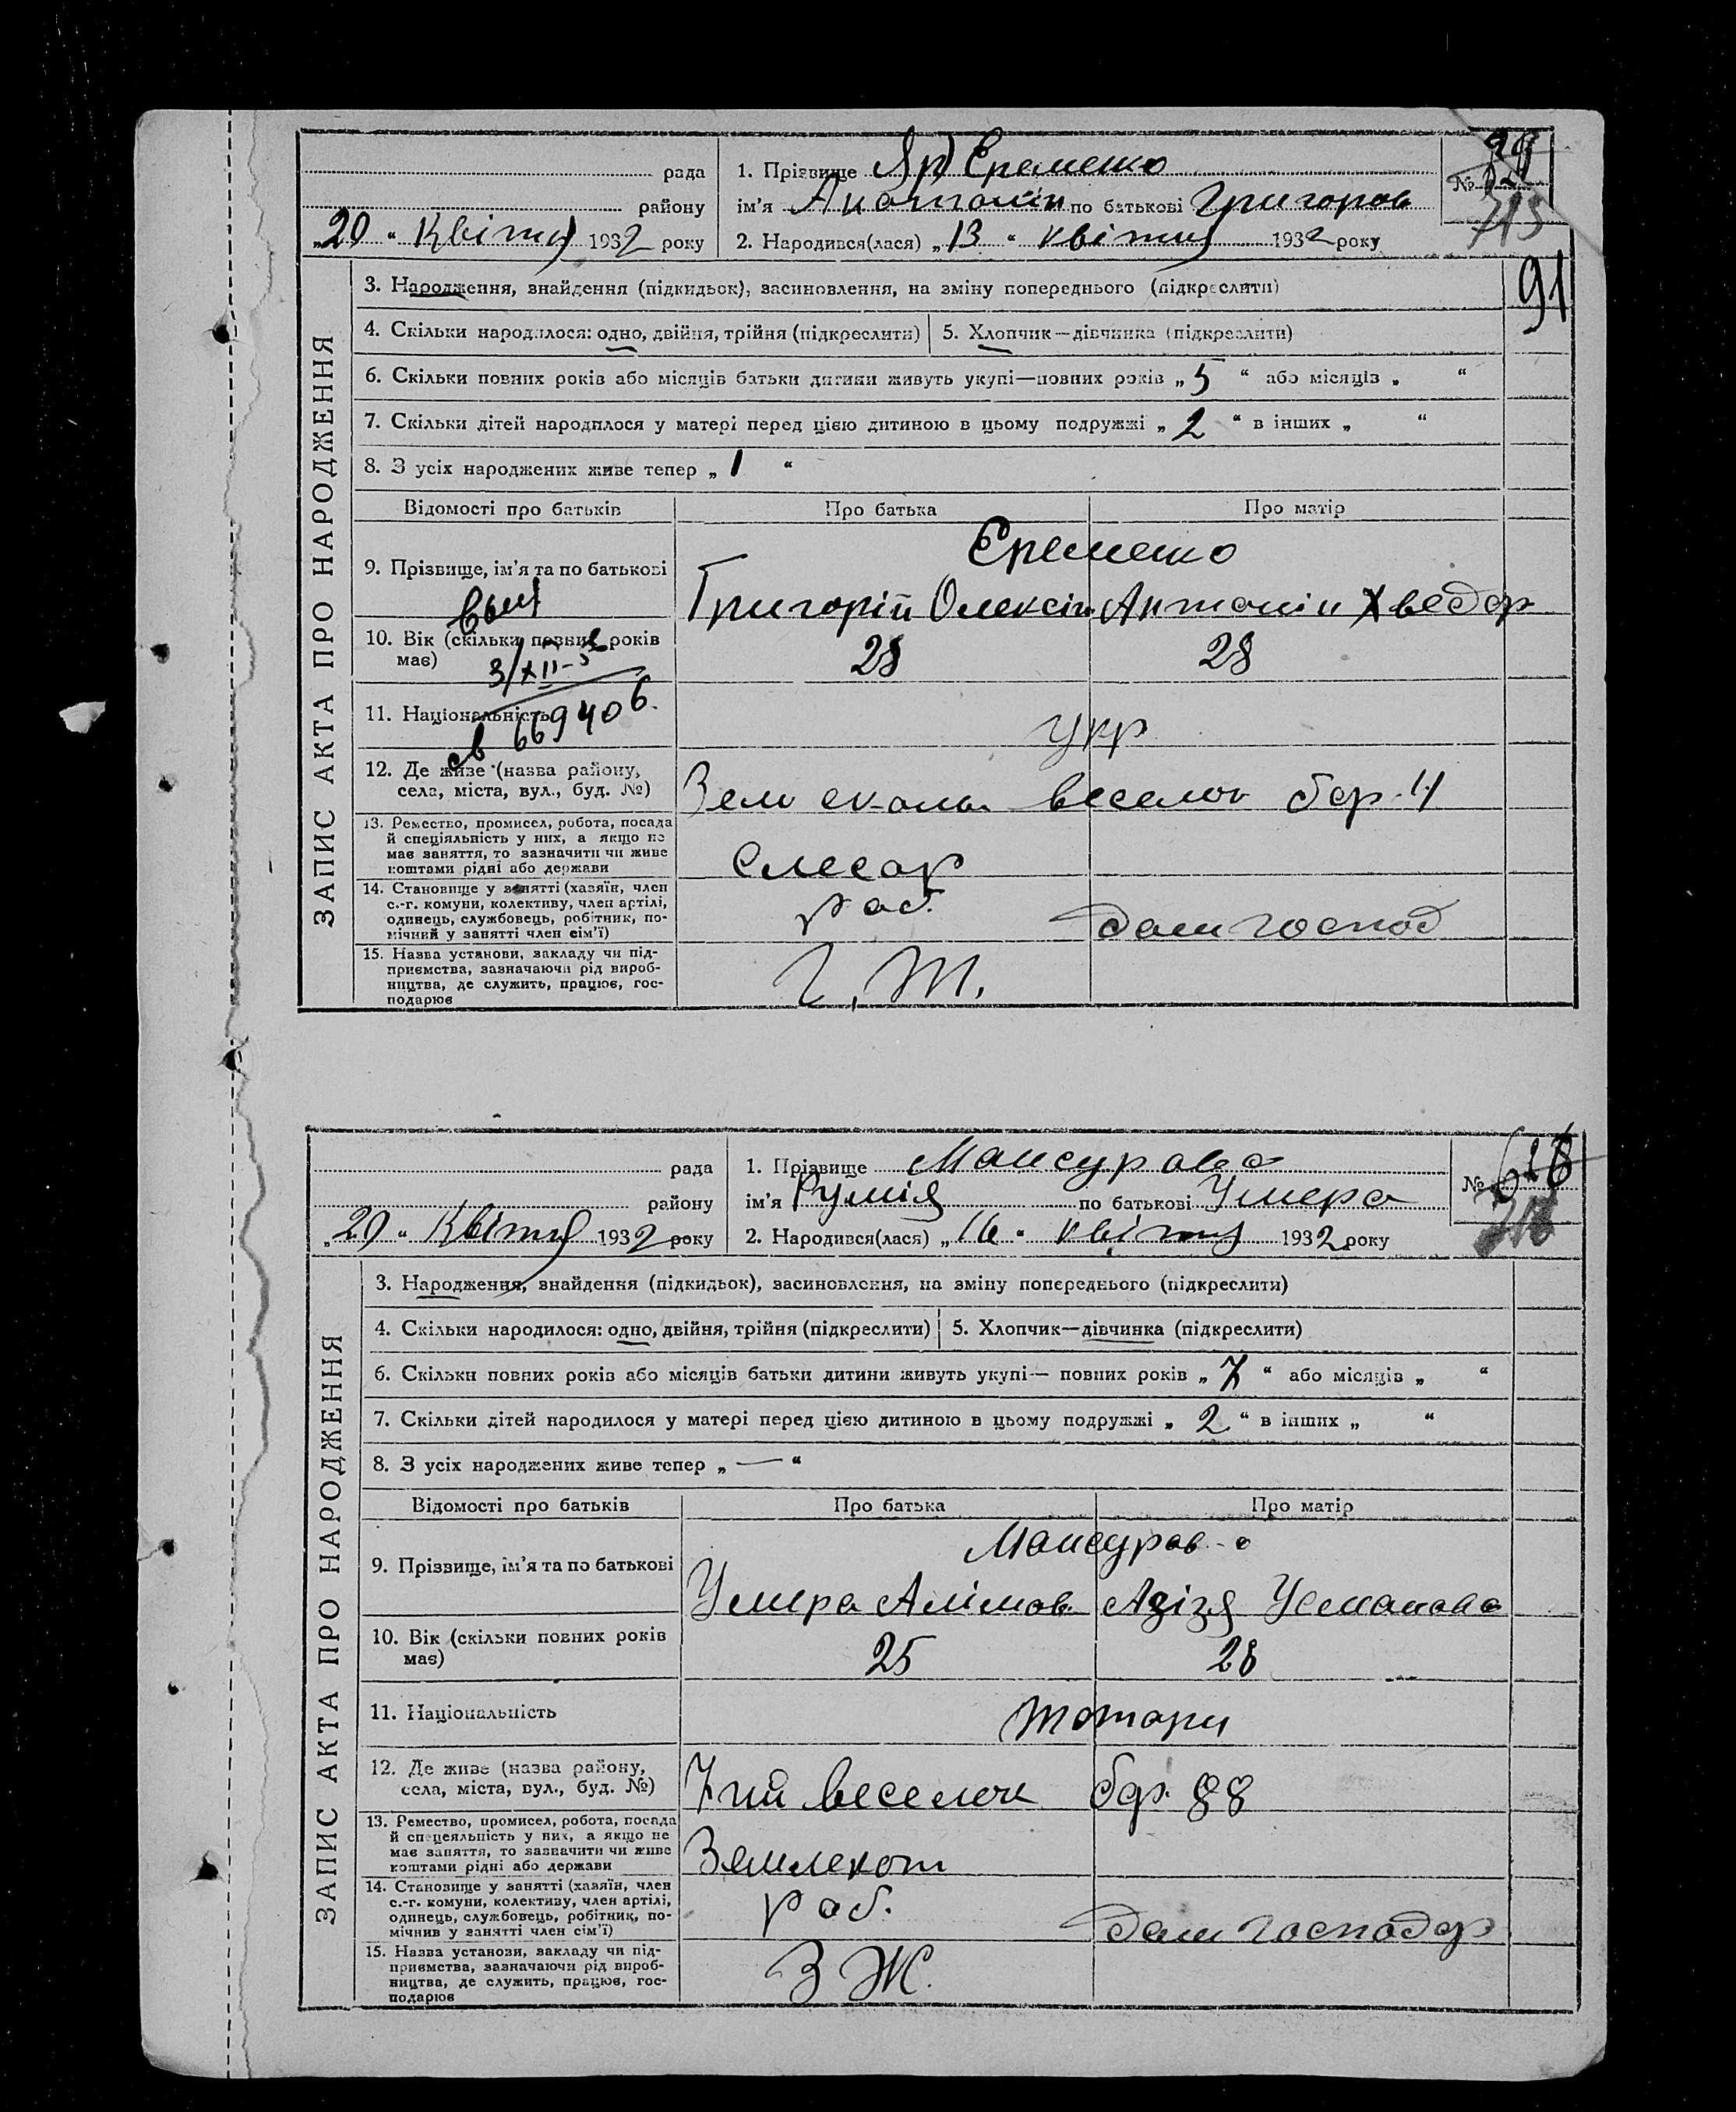 рада
району
„20 “ Квітня 1932 року
1. Прізвище Єременко
ім'я Анатолій по батькові Григоров
2. Народився(лася) „13 “ квітня 1932 року
№
315
91
ЗАПИС АКТА ПРО НАРОДЖЕННЯ
3. Народження, знайдення (підкидьок), засиновлення, на зміну попереднього (підкреслити)
4. Скільки народилося: одно, двійня, трійня (підкреслити) 5. Хлопчик—дівчинка (підкреслити)
6. Скільки повних років або місяців батьки дитини живуть укупі—повних років „ 5 “ або місяців „ “
7. Скільки дітей народилося у матері перед цією дитиною в цьому подружжі „ 2 “ в інших „ “
8. З усіх народжених живе тепер „ 1 “
Відомості про батьків Про батька Про матір
Єременко
9. Прізвище, ім'я та по батькові Григорій Олексін Антонін Хведор
10. Вік (скільки повних років
має) 28 28
3/XII-
11. Національність укр
669406
12. Де живе (назва району,
села, міста, вул., буд. №) веселок бар. 4
13. Ремество, промисел, робота, посада
й спеціяльність у них, а якщо не
має заняття, то зазначити чи живе
коштами рідні або держави
Слесар
14. Становище у занятті (хазяїн, член
с.-г. комуни, колективу, член артілі,
одинець, службовець, робітник, по-
мічний у занятті член сім'ї)
раб. дом господ
15. Назва установи, закладу чи під-
приємства, зазначаючи рід вироб-
ництва, де служить, працює, гос-
подарює
рада
району
„20 “ Квітня 1932 року
1. Прізвище Мансурова
ім'я Румія по батькові Умера
2. Народився(лася) „16 “ квітня 1932 року
№
316
ЗАПИС АКТА ПРО НАРОДЖЕННЯ
3. Народження, знайдення (підкидьок), засиновлення, на зміну попереднього (підкреслити)
4. Скільки народилося: одно, двійня, трійня (підкреслити) 5. Хлопчик—дівчинка (підкреслити)
6. Скільки повних років або місяців батьки дитини живуть укупі— повних років „ 7 “ або місяців „ “
7. Скільки дітей народилося у матері перед цією дитиною в цьому подружжі „ 2 “ в інших „ “
8. З усіх народжених живе тепер „ — “
Відомості про батьків Про батька Про матір
Мансуров-а
9. Прізвище, ім'я та по батькові Умера Алімов Азізя Усманова
10. Вік (скільки повних років
має) 25 28
11. Національність татари
12. Де живе (назва району,
села, міста, вул., буд. №) 7ий веселок бар. 88
13. Ремество, промисел, робота, посада
й спецеяльність у них, а якщо не
має заняття, то зазначити чи живе
коштами рідні або держави
Землекоп
14. Становище у занятті (хазяїн, член
с.-г. комуни, колективу, член артілі,
одинець, службовець, робітник, по-
мічнив у занятті член сім'ї)
раб. дом господар
15. Назва установи, закладу чи під-
приємства, зазначаючи рід вироб-
ництва, де служить, працює, гос-
подарює
З Ж.